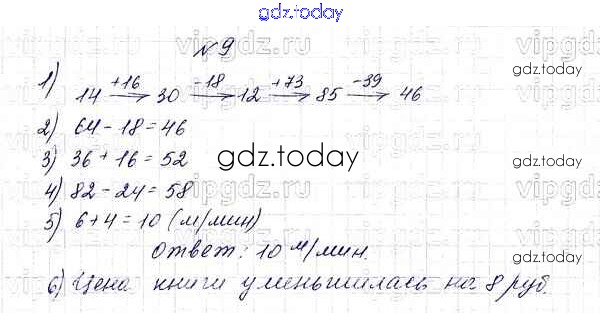 gdz.today
№ 9
gdz.today
1) 14 +16→ 30 -18→ 12 +73→ 85 -39→ 46
2) 64 - 18 = 46
gdz.today
3) 36 + 16 = 52
gdz.today
4) 82 - 24 = 58
gdz.today
5) 6 + 4 = 10 (м/мин)
Ответ: 10 м/мин.
gdz.today
6) Цена книги уменьшилась на 8 руб.